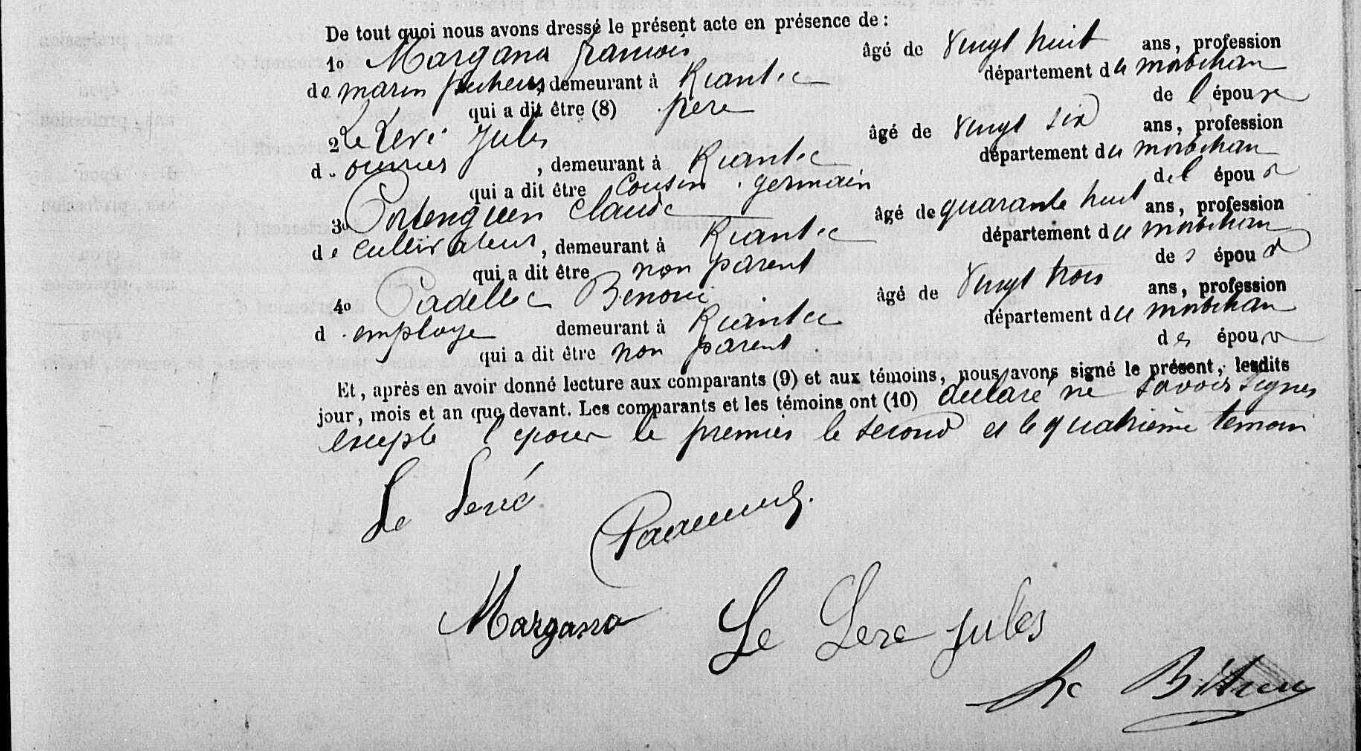 De tout quoi nous avons dressé le présent acte en présence de :
1º Margana francois âgé de Vingt huit ans, profession
de marin pecheur, demeurant à Riantec département du morbihan
qui a dit être (8) père de l'époux
2 Le Léré Jules âgé de Vingt six ans, profession
d. ouvrier , demeurant à Riantec département du morbihan
qui a dit être Cousin germain de l époux
3º claude âgé de quarante huit ans, profession
de cultivateur, demeurant à Riantec département du morbihan
qui a dit être non parent des époux
4º Cadellec Benoni âgé de Vingt trois ans, profession
d. employe demeurant à Riantec département du morbihan
qui a dit être non parent des époux
Et, après en avoir donné lecture aux comparants (9) et aux témoins, nous avons signé le présent, lesdits
jour, mois et an que devant. Les comparants et les témoins ont (10) déclaré ne savoir signer
excepté l'epoux le premier le second et le quatrième temoin
Le Léré
Margana Le Lere jules
Le